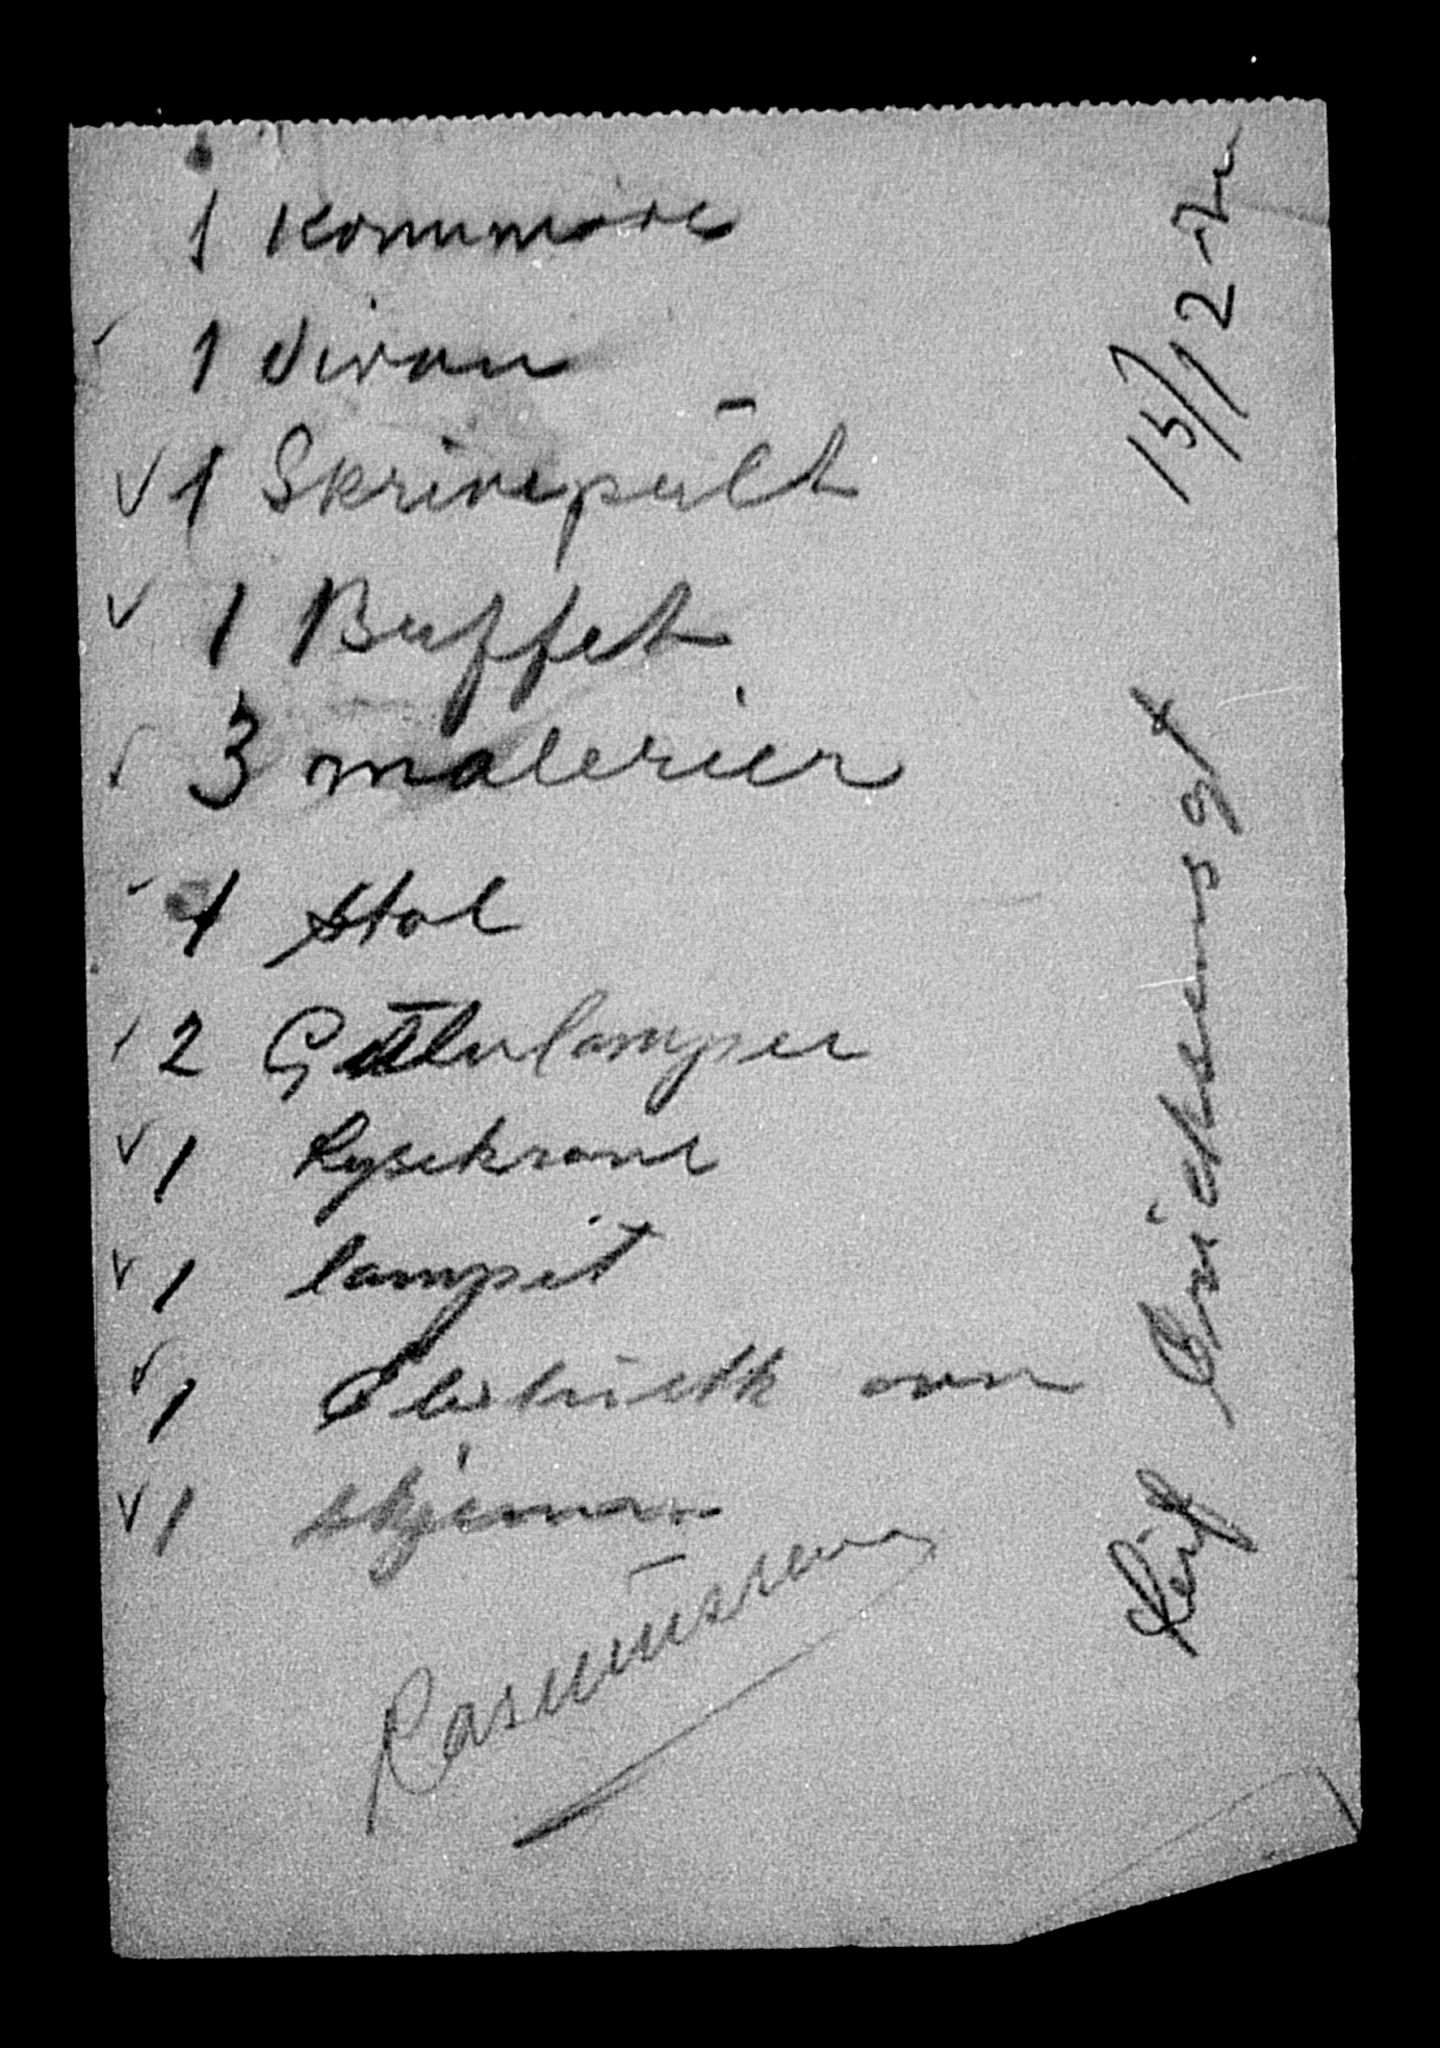 1 Kommode
1 divan
✓ 1 Skrivepult
✓ 1 Buffet
✓ 3 malerier
1 Stol
2 Gulvlamper
✓ 1 Lysekrone
✓ 1 lampet
✓ 1 Elektrisk ovn
✓ 1
Rasmussen
Leif Erichsensgt
15/12